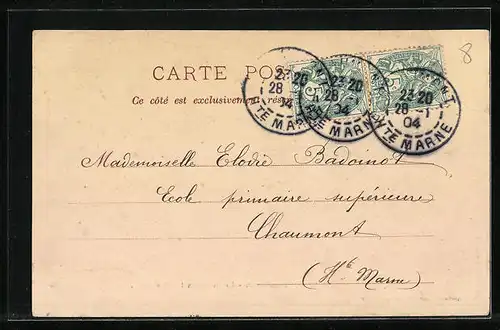 8
CARTE POS
Ce côté est exclusivement rése
23 20
28 -1
04
TE MARNE
23 20
28 -1
04
TE MARNE
MONT
23 20
28 -1
04
TE MARNE
5
5
Mademoiselle Elodie Badoinot
Ecole primaire supérieure
Chaumont
(Hte Marne)